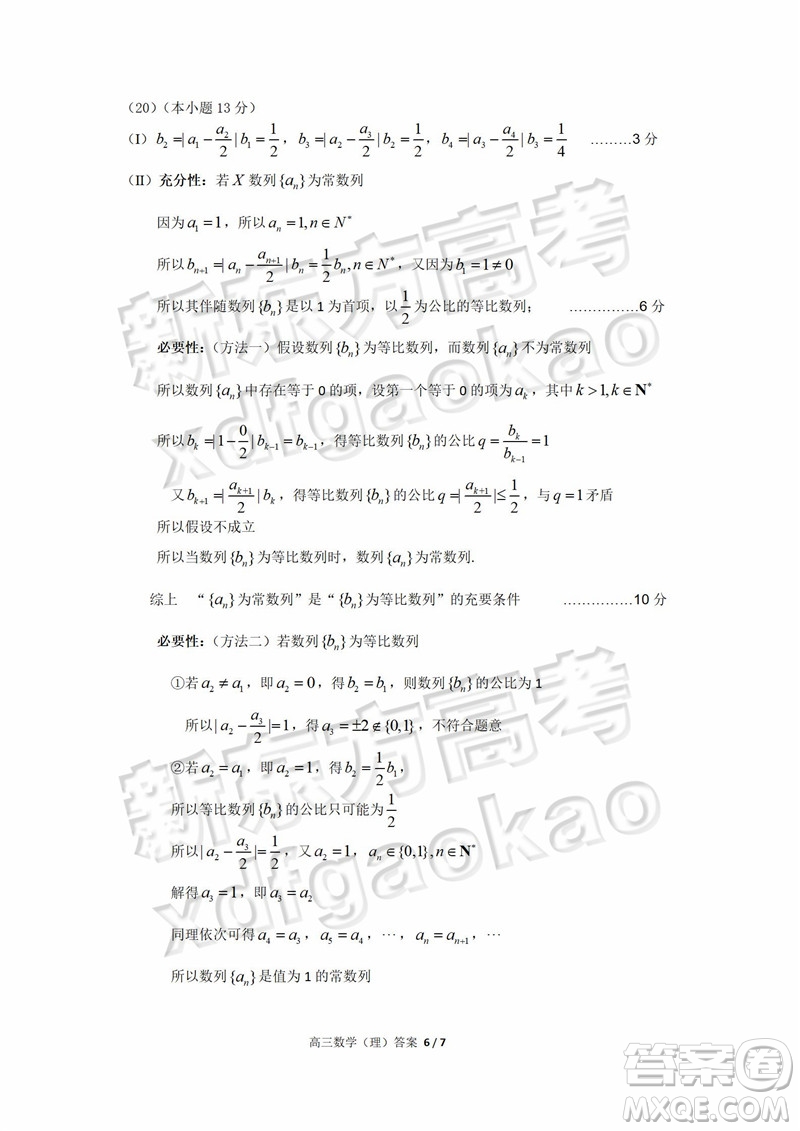 (20)（本小题13分）
(I) b₂=|a₁−a₂/2|b₁=1/2，b₃=|a₂−a₃/2|b₂=1/2，b₄=|a₃−a₄/2|b₃=1/4 ………3分
(II) 充分性：若X数列{aₙ}为常数列
因为a₁=1，所以aₙ=1,n∈N*
所以bₙ₊₁=|aₙ−aₙ₊₁/2|bₙ=1/2bₙ,n∈N*，又因为b₁=1≠0
所以其伴随数列{bₙ}是以1为首项，以1/2为公比的等比数列； ……………6分
必要性：（方法一）假设数列{bₙ}为等比数列，而数列{aₙ}不为常数列
所以数列{aₙ}中存在等于0的项，设第一个等于0的项为aₖ，其中k>1,k∈N*
所以bₖ=|1−0/2|bₖ₋₁=bₖ₋₁，得等比数列{bₙ}的公比q=bₖ/bₖ₋₁=1
又bₖ₊₁=|aₖ₊₁/2|bₖ，得等比数列{bₙ}的公比q=|aₖ₊₁/2|≤1/2，与q=1矛盾
所以假设不成立
所以当数列{bₙ}为等比数列时，数列{aₙ}为常数列.
综上 “{aₙ}为常数列”是“{bₙ}为等比数列”的充要条件 ……………10分
必要性：（方法二）若数列{bₙ}为等比数列
①若a₂≠a₁，即a₂=0，得b₂=b₁，则数列{bₙ}的公比为1
所以|a₂−a₃/2|=1，得a₃=±2∉{0,1}，不符合题意
②若a₂=a₁，即a₂=1，得b₂=1/2b₁，
所以等比数列{bₙ}的公比只可能为1/2
所以|a₂−a₃/2|=1/2，又a₂=1，aₙ∈{0,1},n∈N*
解得a₃=1，即a₃=a₂
同理依次可得a₄=a₃，a₅=a₄，⋯，aₙ=aₙ₊₁，⋯
所以数列{aₙ}是值为1的常数列
高三数学（理）答案 6 / 7
新东方高考
xdfgaokao
新东方高考
xdfgaokao
答案圈
MXQE.COM